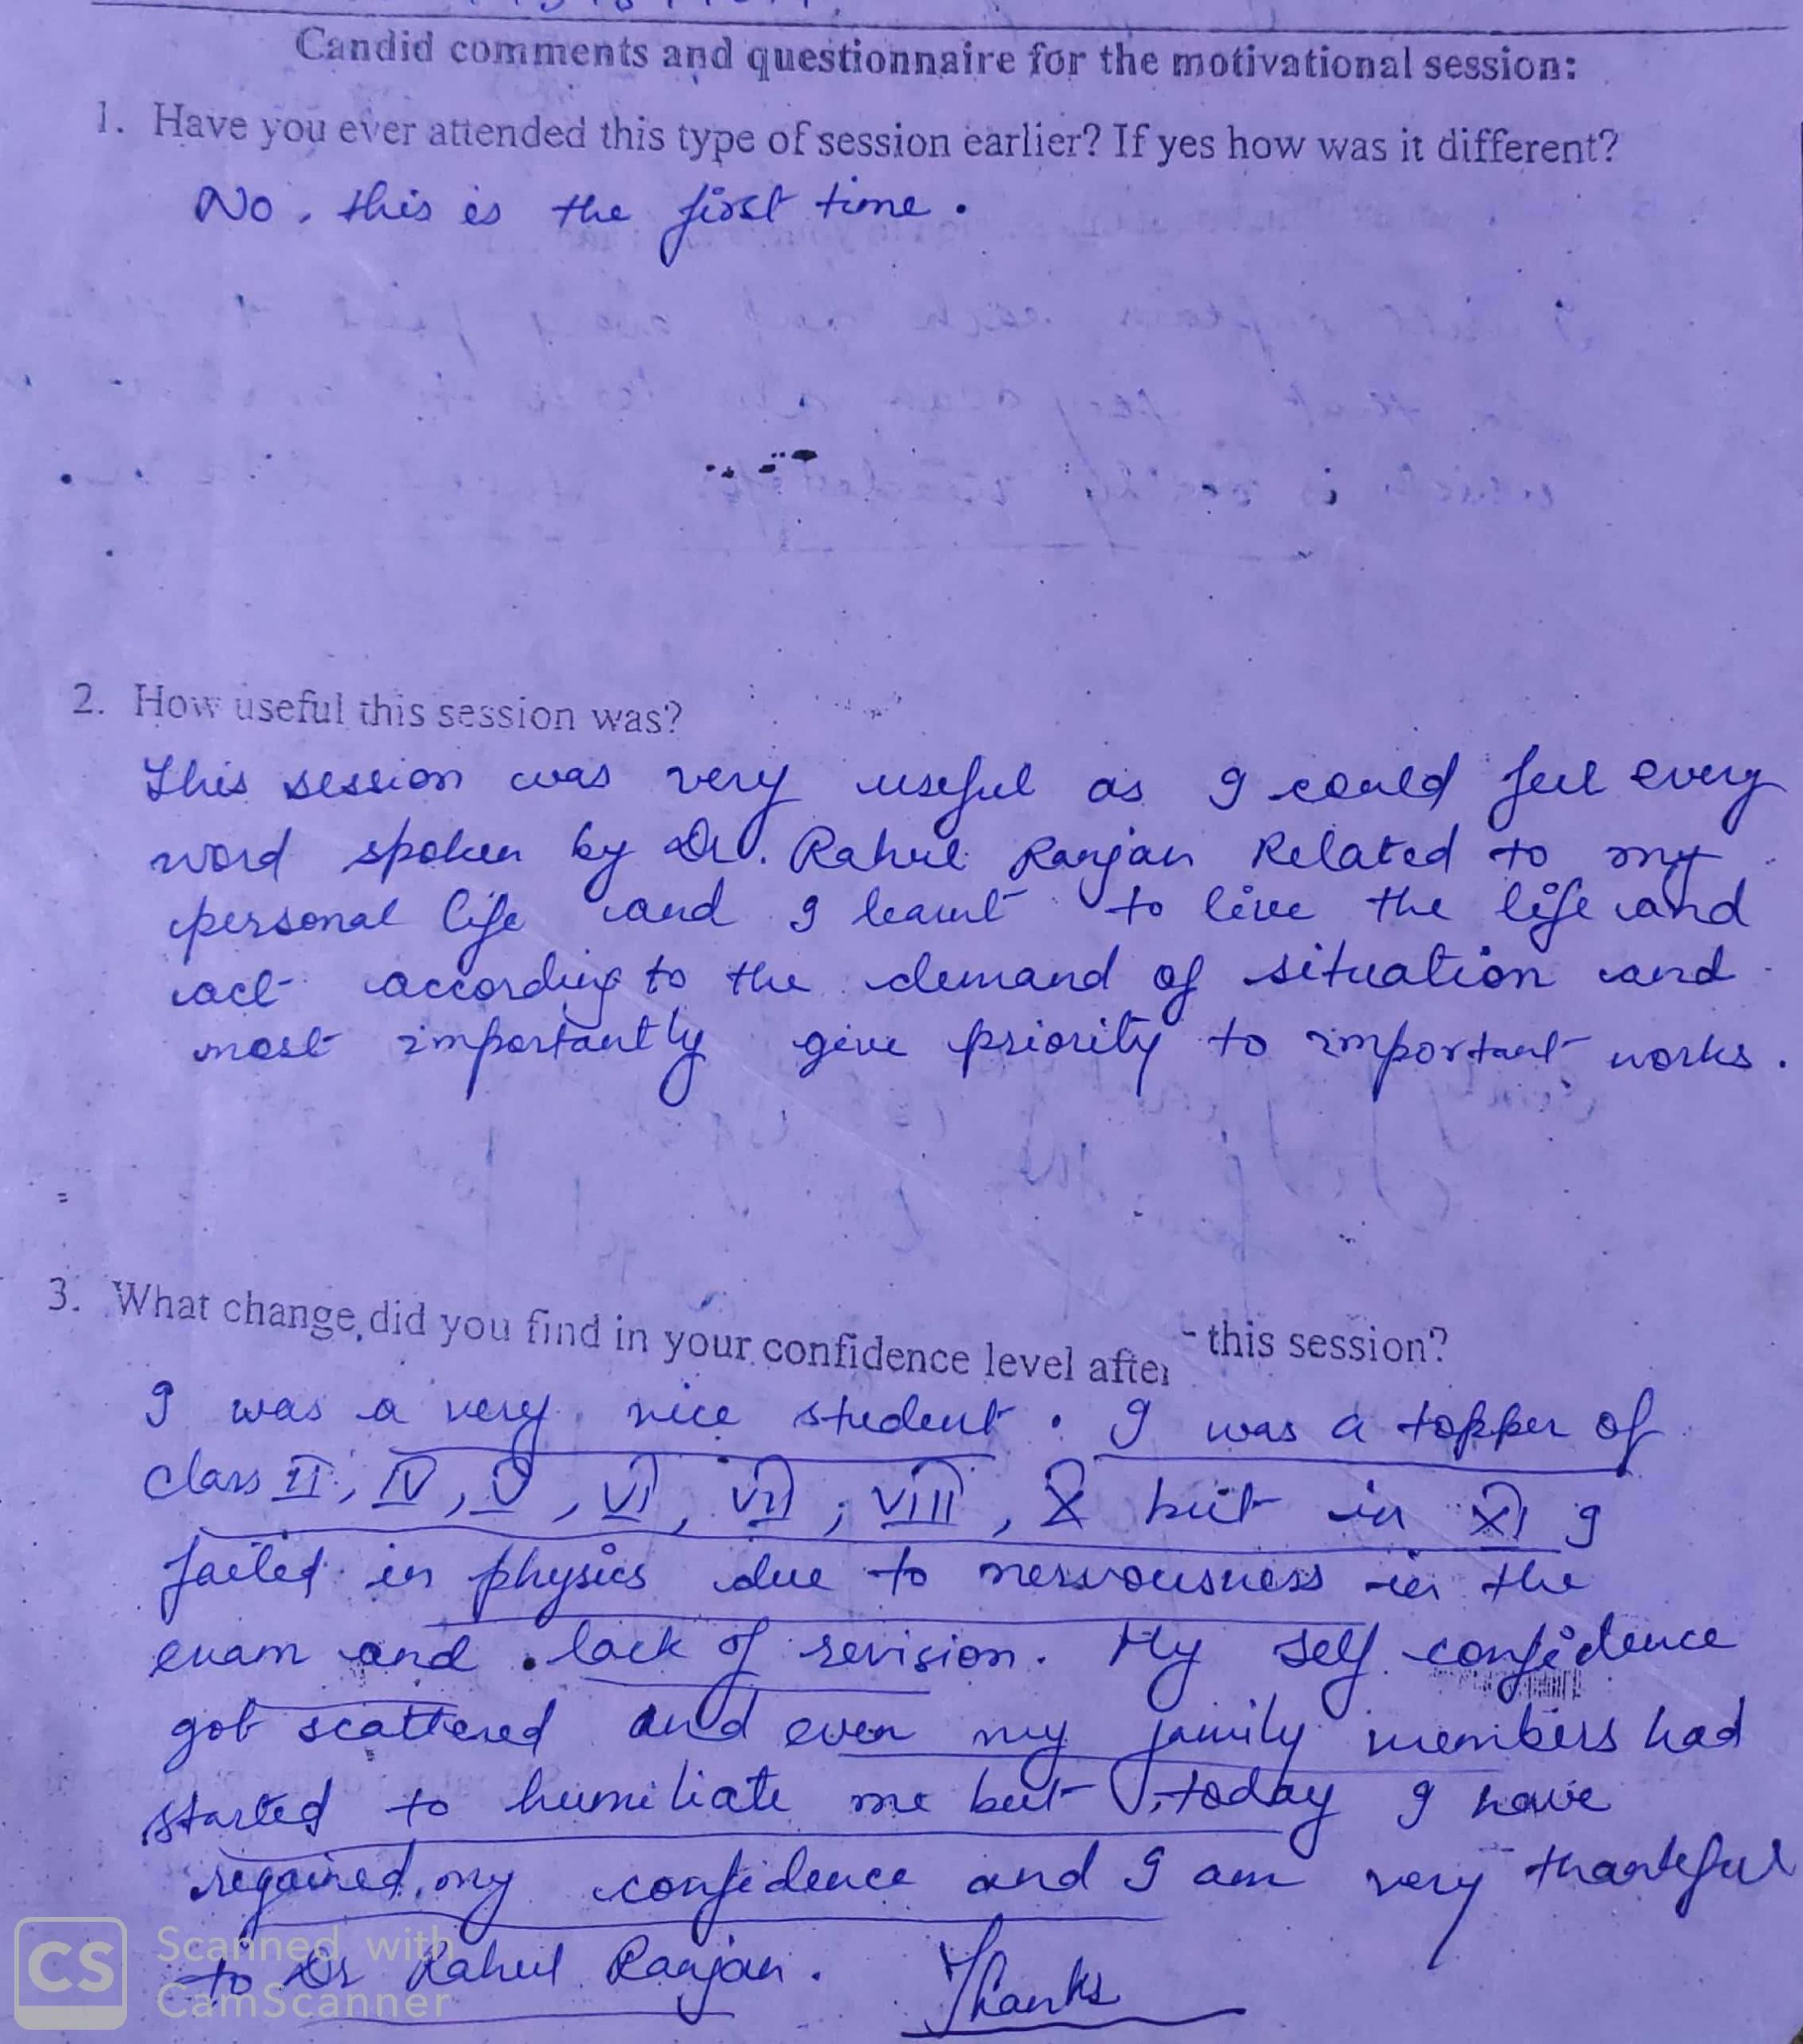 Candid comments and questionnaire for the motivational session:
1. Have you ever attended this type of session earlier? If yes how was it different?
No, this is the first time.
2. How useful this session was?
This session was very useful as I could feel every
word spoken by Dr. Rahul Ranjan Related to my
personal life and I learnt to live the life and
act according to the demand of situation and
most importantly give priority to important works.
3. What change did you find in your confidence level after this session?
I was a very nice student. I was a topper of
class II, IV, V, VI, VII, VIII, X but in XI I
failed in physics due to nervousness in the
exam and lack of revision. My self confidence
got scattered and even my family members had
started to humiliate me but today I have
regained my confidence and I am very thankful
to Dr Rahul Ranjan. Thanks
CS Scanned with
CamScanner